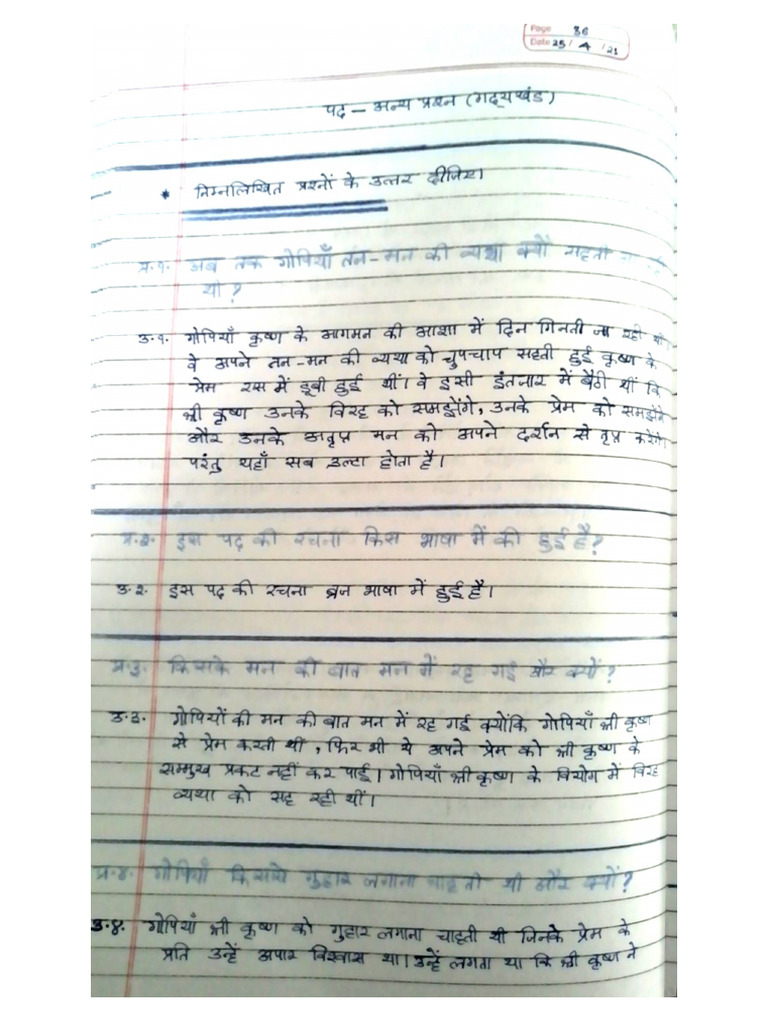 Page 36
Date 25/4/21
पद – अन्य प्रश्न (गद्यखंड)
* निम्नलिखित प्रश्नों के उत्तर दीजिए।
प्र.१. अब तक गोपियाँ तन-मन की व्यथा क्यों सहती
थी?
उ.१. गोपियाँ कृष्ण के आगमन की आशा में दिन गिनती जा रही थी।
वे अपने तन-मन की व्यथा को चुपचाप सहती हुई कृष्ण के
प्रेम रस में डूबी हुई थीं। वे इसी इंतजार में बैठी थीं कि
श्री कृष्ण उनके विरह को समझेंगे, उनके प्रेम को समझेंगे
और उनके अतृप्त मन को अपने दर्शन से तृप्त करेंगे।
परंतु यहाँ सब उल्टा होता है।
प्र.२. इस पद की रचना किस भाषा में की हुई है?
उ.२. इस पद की रचना ब्रज भाषा में हुई है।
प्र.३. किसके मन की बात मन में रह गई और क्यों?
उ.३. गोपियों की मन की बात मन में रह गई क्योंकि गोपियाँ श्री कृष्ण
से प्रेम करती थीं, फिर भी ये अपने प्रेम को श्री कृष्ण के
सम्मुख प्रकट नहीं कर पाई। गोपियाँ श्री कृष्ण के वियोग में विरह
व्यथा को सह रही थीं।
प्र.४. गोपियाँ किससे गुहार लगाना चाहती थी और क्यों?
उ.४. गोपियाँ श्री कृष्ण को गुहार लगाना चाहती थी जिनके प्रेम के
प्रति उन्हें अपार विश्वास था। उन्हें लगता था कि श्री कृष्ण ने